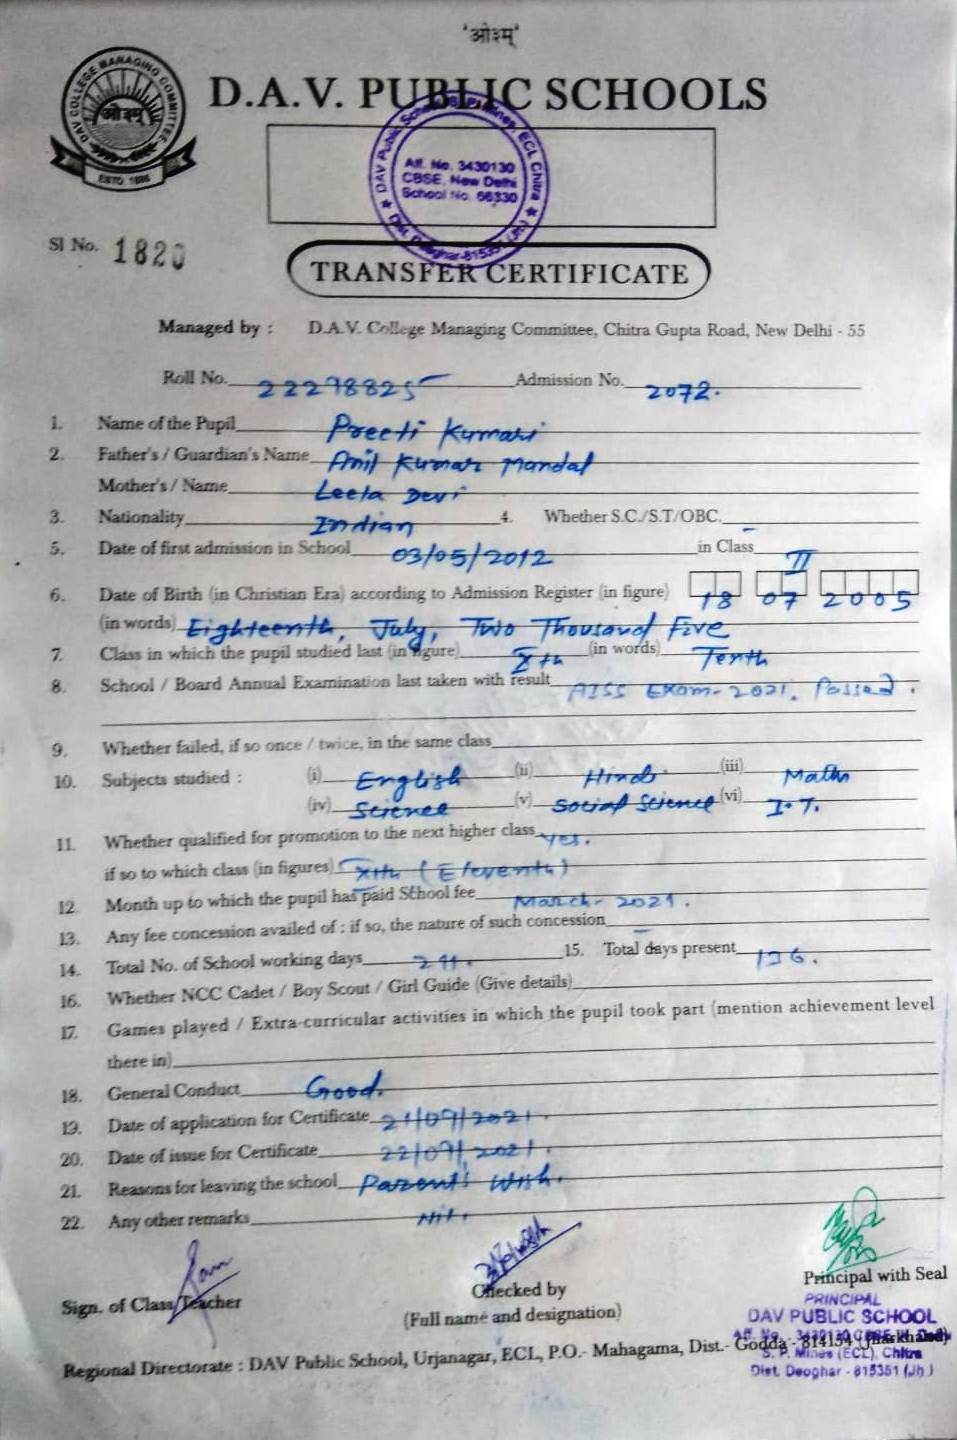 'ओ३म्'
DAV COLLEGE MANAGING COMMITTEE
ओ३म्
ESTD. 1886
D.A.V. PUBLIC SCHOOLS
DAV Public School, S. P. Mines, ECL Chitra
Aff. No. 3430130
CBSE, New Delhi
School No. 66330
Dist. Deoghar-815351 (Jh)
Sl No. 1820
TRANSFER CERTIFICATE
Managed by : D.A.V. College Managing Committee, Chitra Gupta Road, New Delhi - 55
Roll No. 22278825 Admission No. 2072.
1. Name of the Pupil Preeti Kumari
2. Father's / Guardian's Name Anil Kumar Mandal
Mother's / Name Leela Devi
3. Nationality Indian 4. Whether S.C./S.T/OBC. -
5. Date of first admission in School 03/05/2012 in Class II
6. Date of Birth (in Christian Era) according to Admission Register (in figure) 18 07 2005
(in words) Eighteenth, July, Two Thousand Five
7. Class in which the pupil studied last (in figure) Xth (in words) Tenth
8. School / Board Annual Examination last taken with result AISS Exam-2021. Passed.
9. Whether failed, if so once / twice, in the same class
10. Subjects studied : (i) English (ii) Hindi (iii) Maths
(iv) Science (v) Social Science (vi) I.T.
11. Whether qualified for promotion to the next higher class yes.
if so to which class (in figures) XIth (Eleventh)
12. Month up to which the pupil has paid School fee March-2021.
13. Any fee concession availed of : if so, the nature of such concession -
14. Total No. of School working days 15. Total days present
16. Whether NCC Cadet / Boy Scout / Girl Guide (Give details)
17. Games played / Extra-curricular activities in which the pupil took part (mention achievement level
there in)
18. General Conduct Good.
19. Date of application for Certificate 21/09/2021.
20. Date of issue for Certificate 22/09/2021.
21. Reasons for leaving the school Parent's Wish.
22. Any other remarks Nil.
Sign. of Class Teacher
Checked by
(Full name and designation)
Principal with Seal
PRINCIPAL
DAV PUBLIC SCHOOL
Aff. No. 3430130 CBSE, N. Delhi
S. P. Mines (ECL), Chitra
Dist. Deoghar - 815351 (Jh)
Regional Directorate : DAV Public School, Urjanagar, ECL, P.O.- Mahagama, Dist.- Godda - 814154 (Jharkhand)